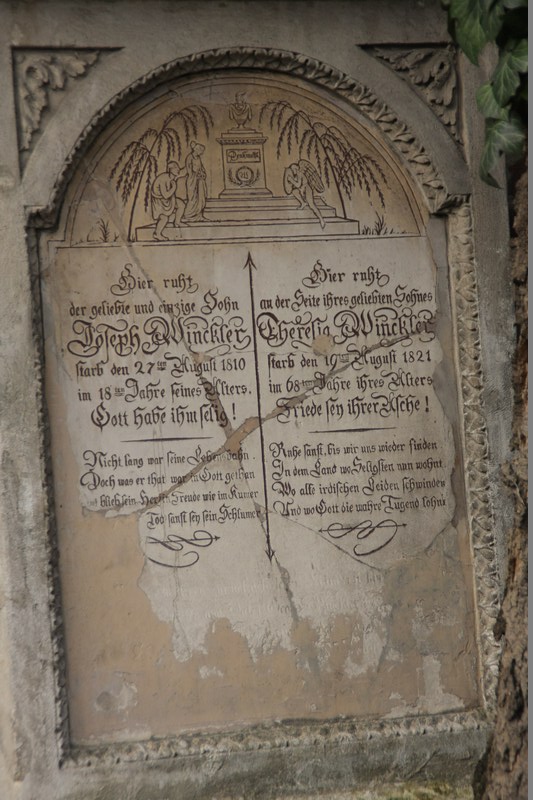 Denkmahl
Hier ruht
der geliebte und einzige Sohn
Joseph Winckler
starb den 27ten August 1810
im 18ten Jahre seines Alters.
Gott habe ihm selig!
Nicht lang war seine Lebensbahn.
Doch was er that war in Gott gethan
blieb sein Herz in Freude wie im Kumer
Too sanft sey sein Schlumer
Hier ruht
an der Seite ihres geliebten Sohnes
Theresia Winckler
starb den 19ten August 1821
im 68ten Jahre ihres Alters
Friede sey ihrer Asche!
Ruhe sanft, bis wir uns wieder finden
In dem Land wo Seligsten nun wohnt
Wo alle irdischen Leiden schwinden
Und wo Gott die wahre Tugend lohnt